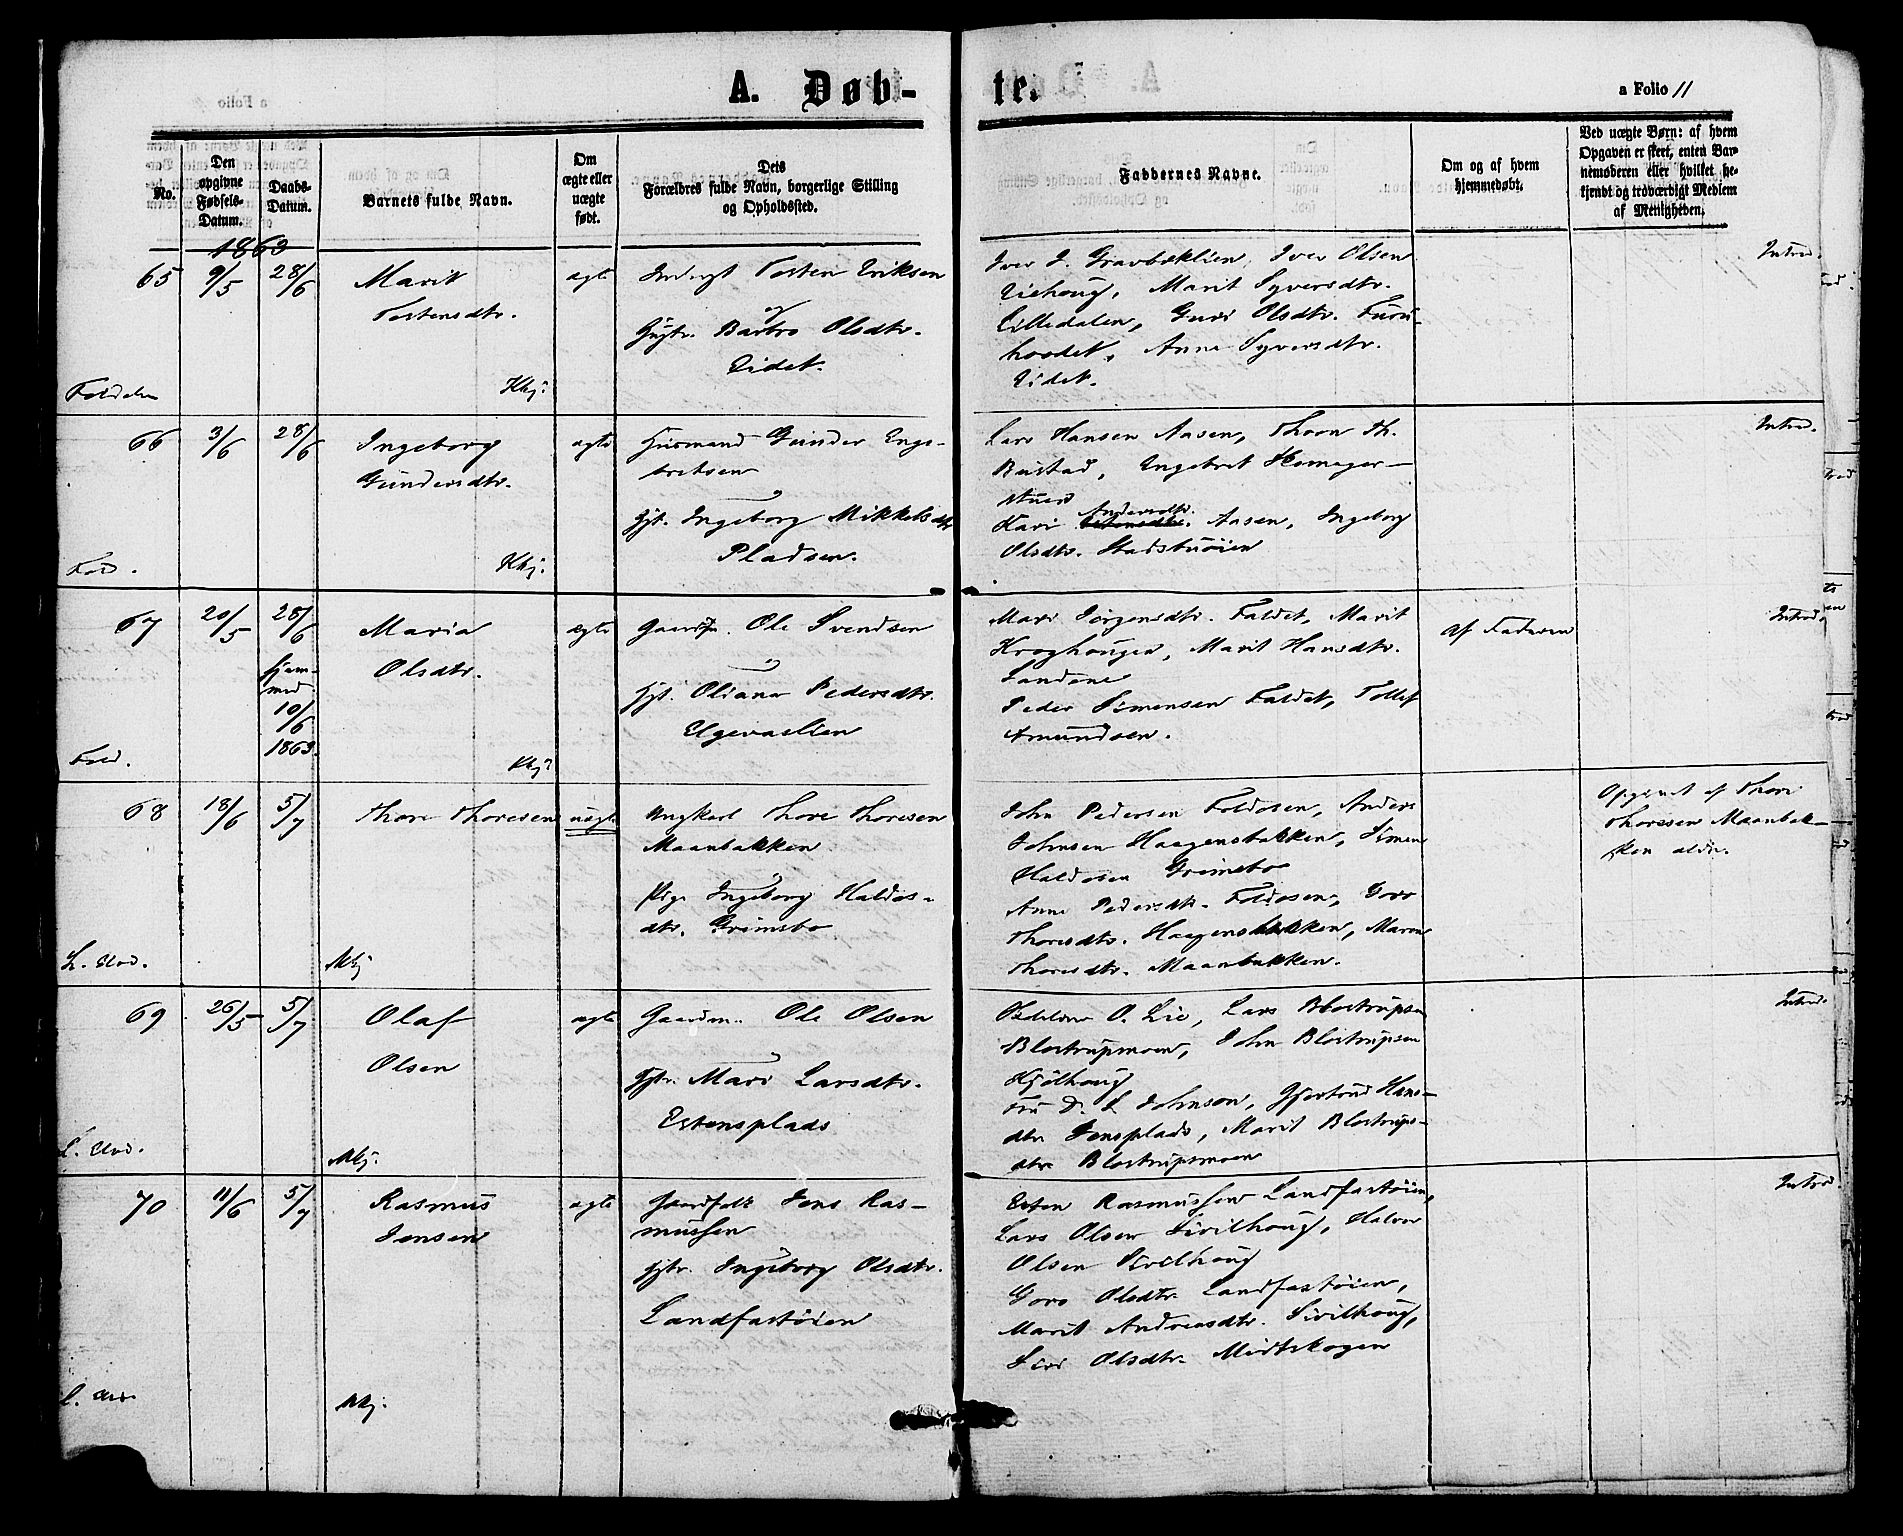 A. Døb-
te.
a Folio 11
No.
Den
opgivne
Fødsels-
Datum.
Daabs-
Datum.
Barnets fulde Navn.
Om
ægte eller
uægte
født.
Dets
Forældres fulde Navn, borgerlige Stilling
og Opholdssted.
Faddernes Navne.
Om og af hvem
hjemmedøbt.
Ved uægte Børn: af hvem
Opgaven er skeet, enten Bar-
nemoderen eller hvilket be-
kjendt og troværdigt Medlem
af Menigheden.
1863
65
9/5
28/6
Marit
Tostensdtr.
Kkj:
Tosten Eriksen
Barbro Olsdtr.
Eidet.
Iver J. Gravbæklien, Iver Olsen
Marit Syversdtr.
Lilledalen, Guri Olsdtr. Furu-
hovdet, Anne Syversdtr.
Eidet.
Introd.
Foldalen
66
3/6
28/6
Ingeborg
Gundersdtr.
Kkj:
ægte
Huusmand Gunder Enge-
bretsen
Hst. Ingeborg Mikkelsdtr
Pladsen.
Lars Hansen Aasen, Thorn Th.
Bustad, Ingebret
Kari Andersdtr. Aasen, Ingeborg
Olsdtr. Stadsbuøien
Introd.
Fold.
67
20/5
28/6
hjem-
med
10/6
1863.
Maria
Olsdtr.
Kkj:
ægte
Gaardm. Ole Svendsen
Hst. Oliana Pedersdtr.
Elgevaslien
Mari Jørgensdtr. Faldet, Marit
Kroghougen, Marit Hansdtr.
Sandene
Peder Simensen Faldet, Tollef
Amundsen.
af Faderen
Introd.
Fold.
68
18/6
5/7
Thore Thoresen
uægte
Ungkarl Thore Thoresen
Maanbakken.
Pige Ingeborg Haldos-
dtr. Grimsbo
John Pedersen Foldosen, Anders
Johnsen Haagensbakken, Simen
Haldosen Grimsbo
Anne Pedersdtr. Foldosen, Goro
Thoresdtr. Haagensbakken, Maren
Thoresdtr. Maanbakken.
Opgivet af Thore
Thoresen Maanbak-
ken ældre.
Mkj
69
26/5
5/7
Olaf
Olsen
ægte
Gaardm. Ole Olsen
Hstr. Mari Larsdtr.
Estensplads
O. Lie, Lars Blostrupsen
Blostrupmoen, John Blostrupsen
Kjølhoug
Fru D. L. Johnson, Gjertrud Hans-
dtr Jensplads, Marit Blostrups-
dtr Blostrupmoen
Introd.
Mkj:
70
11/6
5/7
Rasmus
Jensen
ægte
Gaardfolk Jens Ras-
mussen
Hstr. Ingeborg Olsdtr.
Landfastøien
Esten Rasmussen Landfastøien,
Lars Olsen Sivilhoug, Halvor
Olsen Sivilhoug
Goro Olsdtr. Landfastøien,
Marit Andreasdtr. Sivilhoug,
Siri Olsdtr. Midtskogen
Introd.
Mkj: